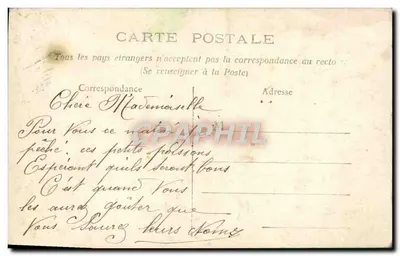 CARTE POSTALE
Tous les pays étrangers n'acceptent pas la correspondance au recto
(Se renseigner à la Poste)
Correspondance
Adresse
Chère Mademoiselle
Pour Vous ce matin j'ai
pêché ces petits poissons
Espérant quils seront bons
C'est quand Vous
les aurez goûter que
Vous Saurez leurs Noms
DELCAMPHIL